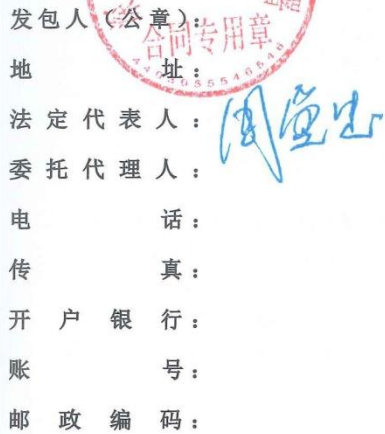 发包人（公章）：
合同专用章
地址：
法定代表人：
委托代理人：
电话：
传真：
开户银行：
账号：
邮政编码：